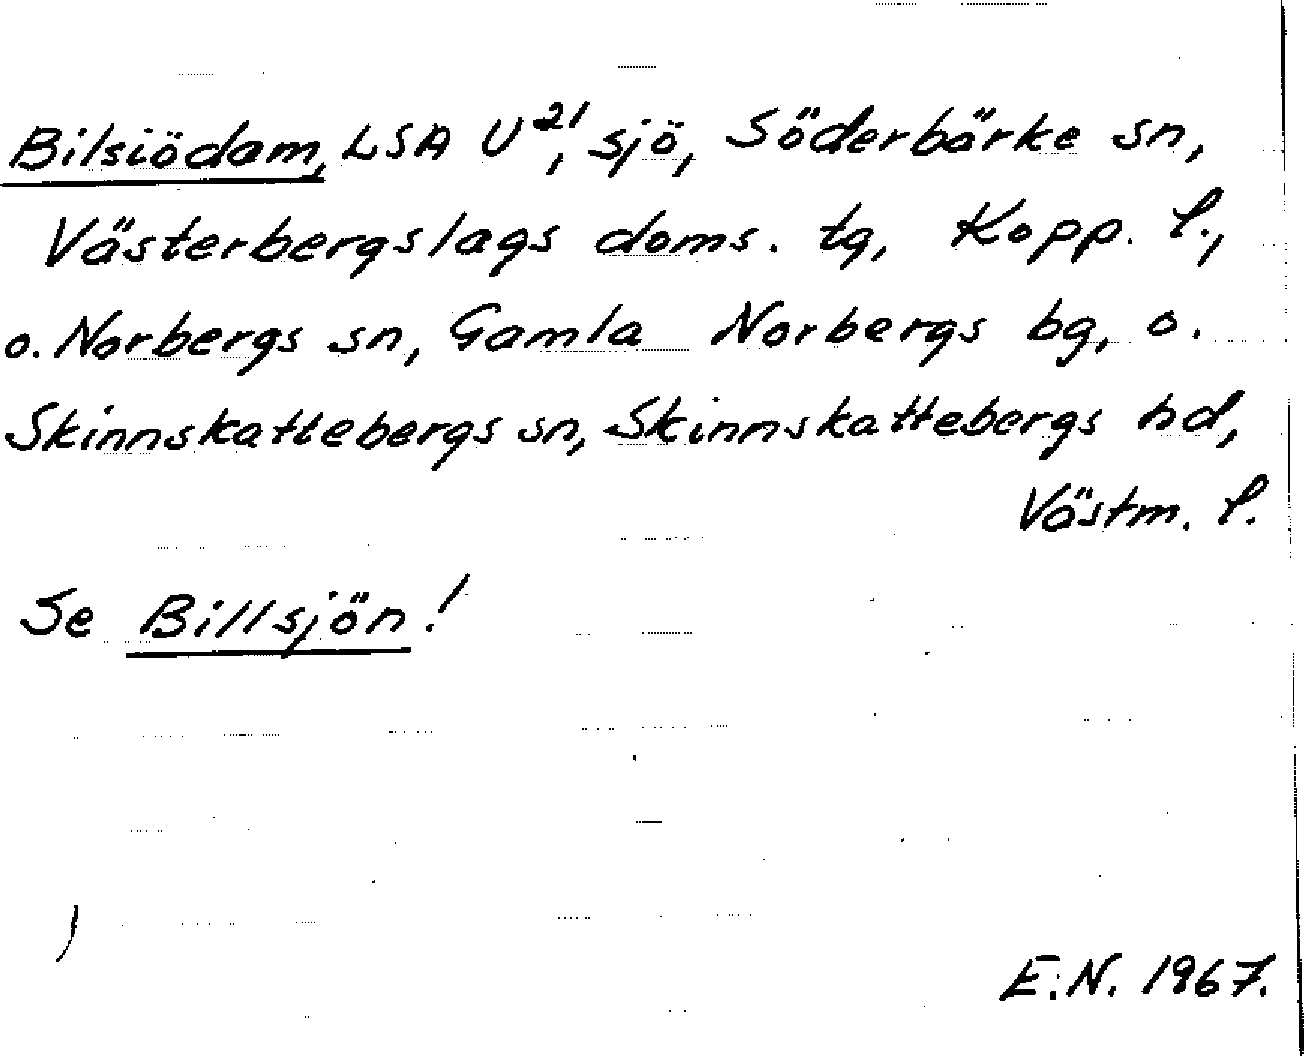 Bilsiödam, LSA U²¹, sjö, Söderbärke sn,
Västerbergslags doms. tg, Kopp. l.,
o. Norbergs sn, Gamla Norbergs bg, o.
Skinnskattebergs sn, Skinnskattebergs hd,
Västm. l.
Se Billsjön!
E.N. 1967.